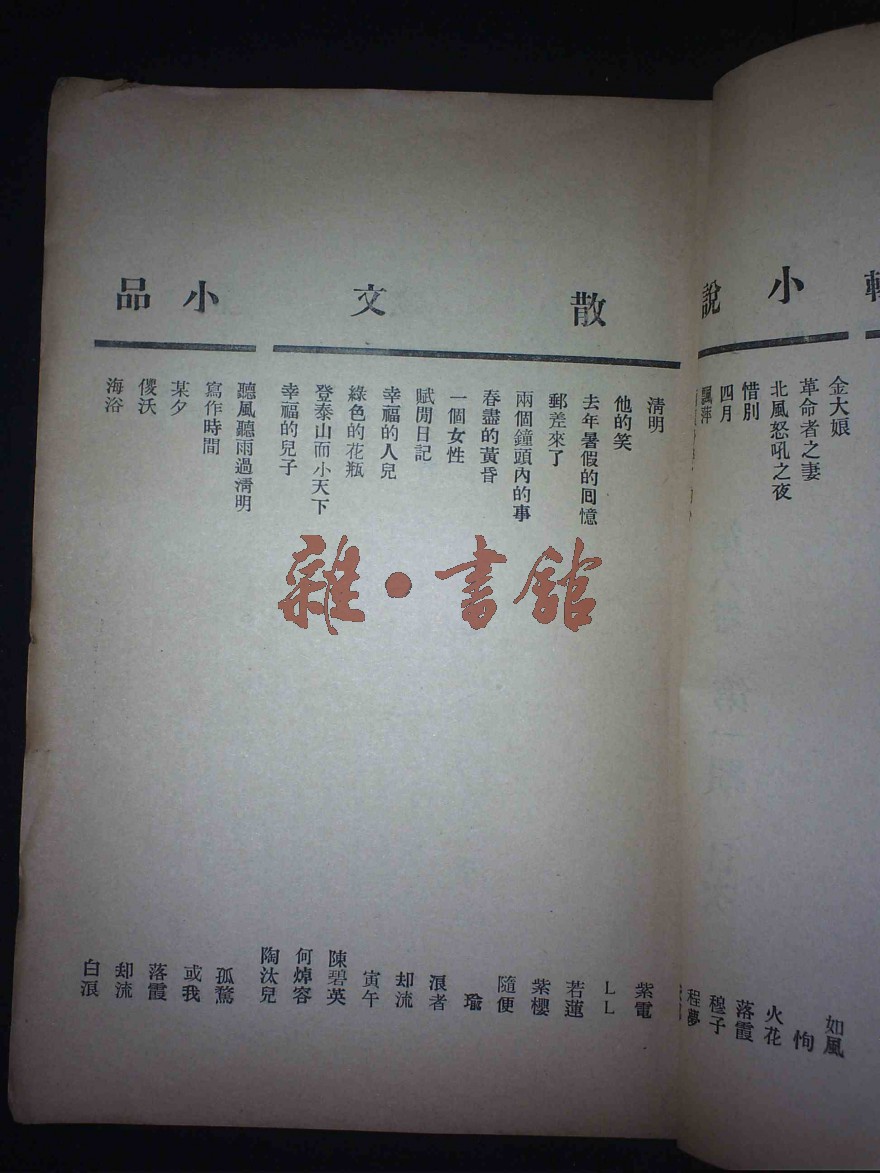 小說
金大娘 如風
革命者之妻 恂
北風怒吼之夜 火花
惜別 落霞
四月 穆子
飄萍 程夢
散文
清明 紫電
他的笑 LL
去年暑假的囘憶 若蓮
郵差來了 紫櫻
兩個鐘頭內的事 隨便
春盡的黃昏 瑜
一個女性 浪者
賦閒日記 却流
幸福的人兒 寅午
綠色的花瓶 陳碧英
登泰山而小天下 何焯容
幸福的兒子 陶汰兒
小品
聽風聽雨過淸明 孤鶩
寫作時間 或我
某夕 落霞
儍沃 却流
海浴 白浪
雜·書館